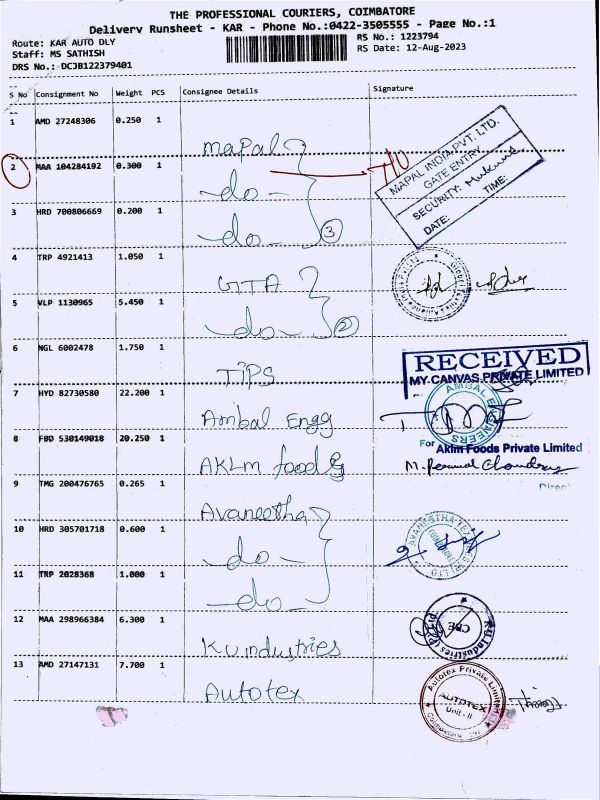 THE PROFESSIONAL COURIERS, COIMBATORE
Delivery Runsheet - KAR - Phone No.:0422-3505555 - Page No.:1
Route: KAR AUTO DLY
RS No.: 1223794
Staff: MS SATHISH
RS Date: 12-Aug-2023
DRS No.: DCJB122379401
S No Consignment No Weight PCS Consignee Details Signature
1 AMD 27248306 0.250 1 Mapal
MAPAL INDIA PVT. LTD.
GATE ENTRY
SECURITY: Mukund
DATE: TIME:
2 MAA 104284192 0.300 1 -do-
3 HRD 700806669 0.200 1 -do- 3
4 TRP 4921413 1.050 1 GTA
5 VLP 1130965 5.450 1 -do- 2
6 NGL 6002478 1.750 1 TIPS
RECEIVED
MY CANVAS PRIVATE LIMITED
7 HYD 82730580 22.200 1 Ambal Engg
AMBAL ENGINEERS
8 FBD 530149018 20.250 1 AKLM food
For Aklm Foods Private Limited
9 TMG 200476765 0.265 1 Avaneetha
10 HRD 305701718 0.600 1 -do-
11 TRP 2028368 1.000 1 -do-
12 MAA 298966384 6.300 1 K.U industries
CBE
13 AMD 27147131 7.700 1 Autotex
Autotex Private Limited
AUTOTEX
Unit - II